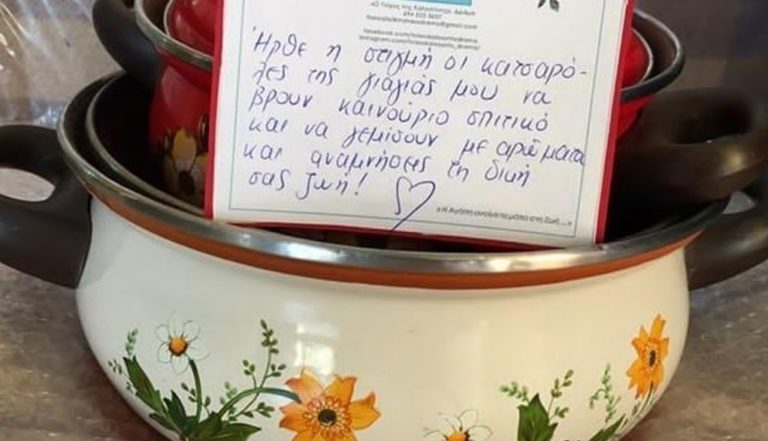 Ήρθε η στιγμή οι κατσαρό-
λες της γιαγιάς μου να
βρουν καινούριο σπιτικό
και να γεμίσουν με αρώματα
και αναμνήσεις τη δική
σας ζωή!